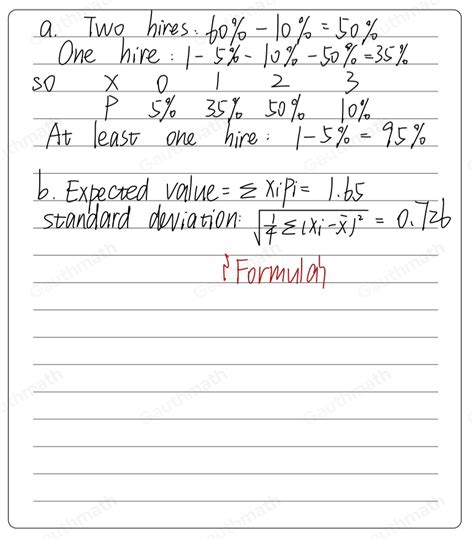 a. Two hires: 60% - 10% = 50%
One hire: 1 - 5% - 10% - 50% = 35%
so X 0 1 2 3
P 5% 35% 50% 10%
At least one hire: 1 - 5% = 95%
b. Expected value = Σ XiPi = 1.65
standard deviation: √(1/4 Σ(Xi - X̄)²) = 0.726
Formulas
Gauthmath